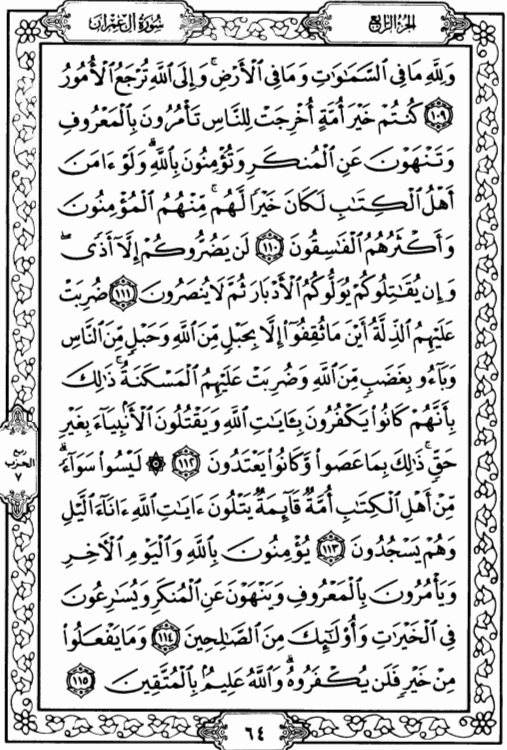 سُورَةُ آلِ عِمْرَان
الجُزْءُ الرَّابِعُ
وَلِلَّهِ مَا فِي السَّمَٰوَٰتِ وَمَا فِي الْأَرْضِ ۚ وَإِلَى اللَّهِ تُرْجَعُ الْأُمُورُ
١٠٩ كُنتُمْ خَيْرَ أُمَّةٍ أُخْرِجَتْ لِلنَّاسِ تَأْمُرُونَ بِالْمَعْرُوفِ
وَتَنْهَوْنَ عَنِ الْمُنكَرِ وَتُؤْمِنُونَ بِاللَّهِ ۗ وَلَوْ ءَامَنَ
أَهْلُ الْكِتَٰبِ لَكَانَ خَيْرًا لَّهُم ۚ مِّنْهُمُ الْمُؤْمِنُونَ
وَأَكْثَرُهُمُ الْفَٰسِقُونَ ١١٠ لَن يَضُرُّوكُمْ إِلَّا أَذًى ۖ
وَإِن يُقَٰتِلُوكُمْ يُوَلُّوكُمُ الْأَدْبَارَ ثُمَّ لَا يُنصَرُونَ ١١١ ضُرِبَتْ
عَلَيْهِمُ الذِّلَّةُ أَيْنَ مَا ثُقِفُوٓا۟ إِلَّا بِحَبْلٍ مِّنَ اللَّهِ وَحَبْلٍ مِّنَ النَّاسِ
وَبَآءُو بِغَضَبٍ مِّنَ اللَّهِ وَضُرِبَتْ عَلَيْهِمُ الْمَسْكَنَةُ ۚ ذَٰلِكَ
بِأَنَّهُمْ كَانُوا۟ يَكْفُرُونَ بِـَٔايَٰتِ اللَّهِ وَيَقْتُلُونَ الْأَنۢبِيَآءَ بِغَيْرِ
حَقٍّ ۚ ذَٰلِكَ بِمَا عَصَوا۟ وَّكَانُوا۟ يَعْتَدُونَ ١١٢ ۞ لَيْسُوا۟ سَوَآءً ۗ
مِّنْ أَهْلِ الْكِتَٰبِ أُمَّةٌ قَآئِمَةٌ يَتْلُونَ ءَايَٰتِ اللَّهِ ءَانَآءَ الَّيْلِ
وَهُمْ يَسْجُدُونَ ١١٣ يُؤْمِنُونَ بِاللَّهِ وَالْيَوْمِ الْءَاخِرِ
وَيَأْمُرُونَ بِالْمَعْرُوفِ وَيَنْهَوْنَ عَنِ الْمُنكَرِ وَيُسَٰرِعُونَ
فِي الْخَيْرَٰتِ وَأُو۟لَٰٓئِكَ مِنَ الصَّٰلِحِينَ ١١٤ وَمَا يَفْعَلُوا۟
مِنْ خَيْرٍ فَلَن يُكْفَرُوهُ ۗ وَاللَّهُ عَلِيمٌۢ بِالْمُتَّقِينَ ١١٥
ربع
الحزب
٧
٦٤